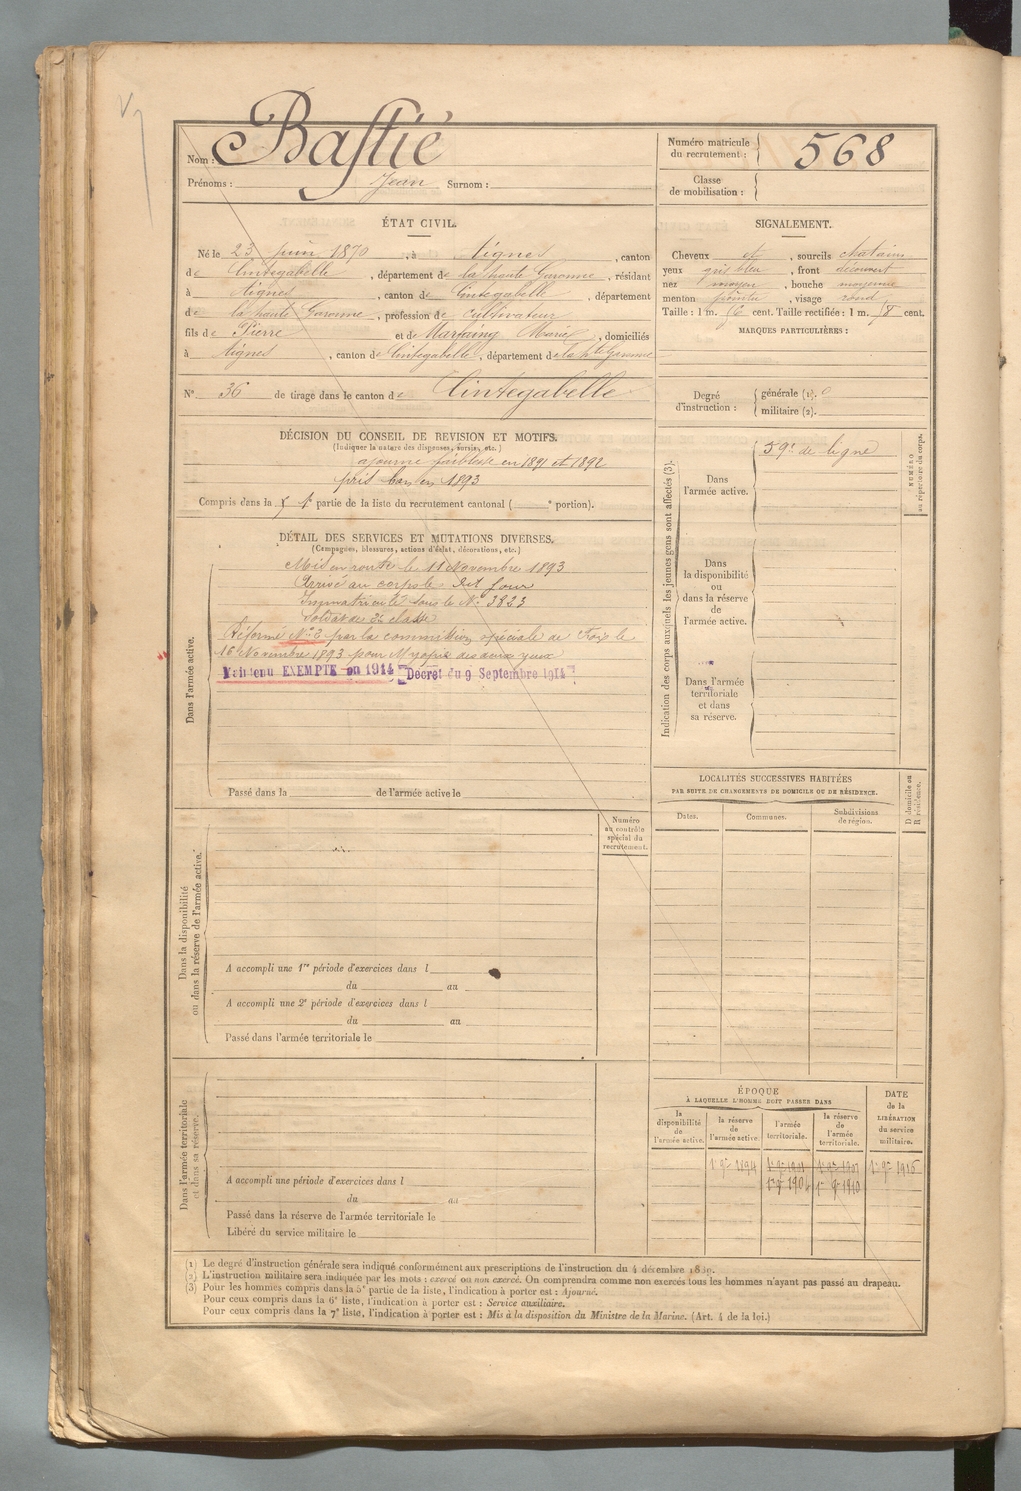 Nom : Bastié
Prénoms : Jean Surnom :
Numéro matricule du recrutement : 568
Classe de mobilisation :
ÉTAT CIVIL.
Né le 23 juin 1870, à Aignes, canton
de Cintegabelle, département de la haute Garonne, résidant
à Aignes, canton de Cintegabelle, département
de la haute Garonne, profession de cultivateur
fils de Pierre et de Marie, domiciliés
à Aignes, canton de Cintegabelle, département de la hte Garonne
N° 36 de tirage dans le canton de Cintegabelle
SIGNALEMENT.
Cheveux et, sourcils chatains
yeux gris bleu, front découvert
nez moyen, bouche moyenne
menton pointu, visage rond
Taille : 1 m. cent. Taille rectifiée : 1 m. cent.
MARQUES PARTICULIÈRES :
Degré d'instruction : générale (1). 0
militaire (2).
DÉCISION DU CONSEIL DE REVISION ET MOTIFS.
(Indiquer la nature des dispenses, sursis, etc.)
ajourné faiblesse en 1891 et 1892
pris bon en 1893
Compris dans la partie de la liste du recrutement cantonal ( e portion).
DÉTAIL DES SERVICES ET MUTATIONS DIVERSES.
(Campagnes, blessures, actions d'éclat, décorations, etc.)
Dans l'armée active.
Mis en route le 11 Novembre 1893
Arrivé au corps le dit jour
Immatriculé sous le N° 3823
Soldat de 2e classe
Réformé N° 2 par la commission spéciale de Foix le
16 Novembre 1893 pour Myopie des deux yeux
Maintenu EXEMPTE en 1914 Décret du 9 Septembre 1914
Passé dans la de l'armée active le
Indication des corps auxquels les jeunes gens sont affectés (3).
Dans l'armée active.
59e de ligne
NUMÉRO au répertoire du corps.
Dans la disponibilité ou dans la réserve de l'armée active.
Dans l'armée territoriale et dans sa réserve.
LOCALITÉS SUCCESSIVES HABITÉES
PAR SUITE DE CHANGEMENTS DE DOMICILE OU DE RÉSIDENCE.
Dates.
Communes.
Subdivisions de région.
D domicile ou R résidence.
Numéro au contrôle spécial du recrutement.
Dans la disponibilité ou dans la réserve de l'armée active.
A accompli une 1re période d'exercices dans l
du au
A accompli une 2e période d'exercices dans l
du au
Passé dans l'armée territoriale le
Dans l'armée territoriale et dans sa réserve.
A accompli une période d'exercices dans l
du au
Passé dans la réserve de l'armée territoriale le
Libéré du service militaire le
ÉPOQUE
À LAQUELLE L'HOMME DOIT PASSER DANS
la disponibilité de l'armée active.
la réserve de l'armée active.
l'armée territoriale.
la réserve de l'armée territoriale.
DATE de la LIBÉRATION du service militaire.
1894
1904 1910
(1) Le degré d'instruction générale sera indiqué conformément aux prescriptions de l'instruction du 4 décembre 1889.
(2) L'instruction militaire sera indiquée par les mots : exercé ou non exercé. On comprendra comme non exercés tous les hommes n'ayant pas passé au drapeau.
(3) Pour les hommes compris dans la 5e partie de la liste, l'indication à porter est : Ajourné.
Pour ceux compris dans la 6e liste, l'indication à porter est : Service auxiliaire.
Pour ceux compris dans la 7e liste, l'indication à porter est : Mis à la disposition du Ministre de la Marine. (Art. 4 de la loi.)